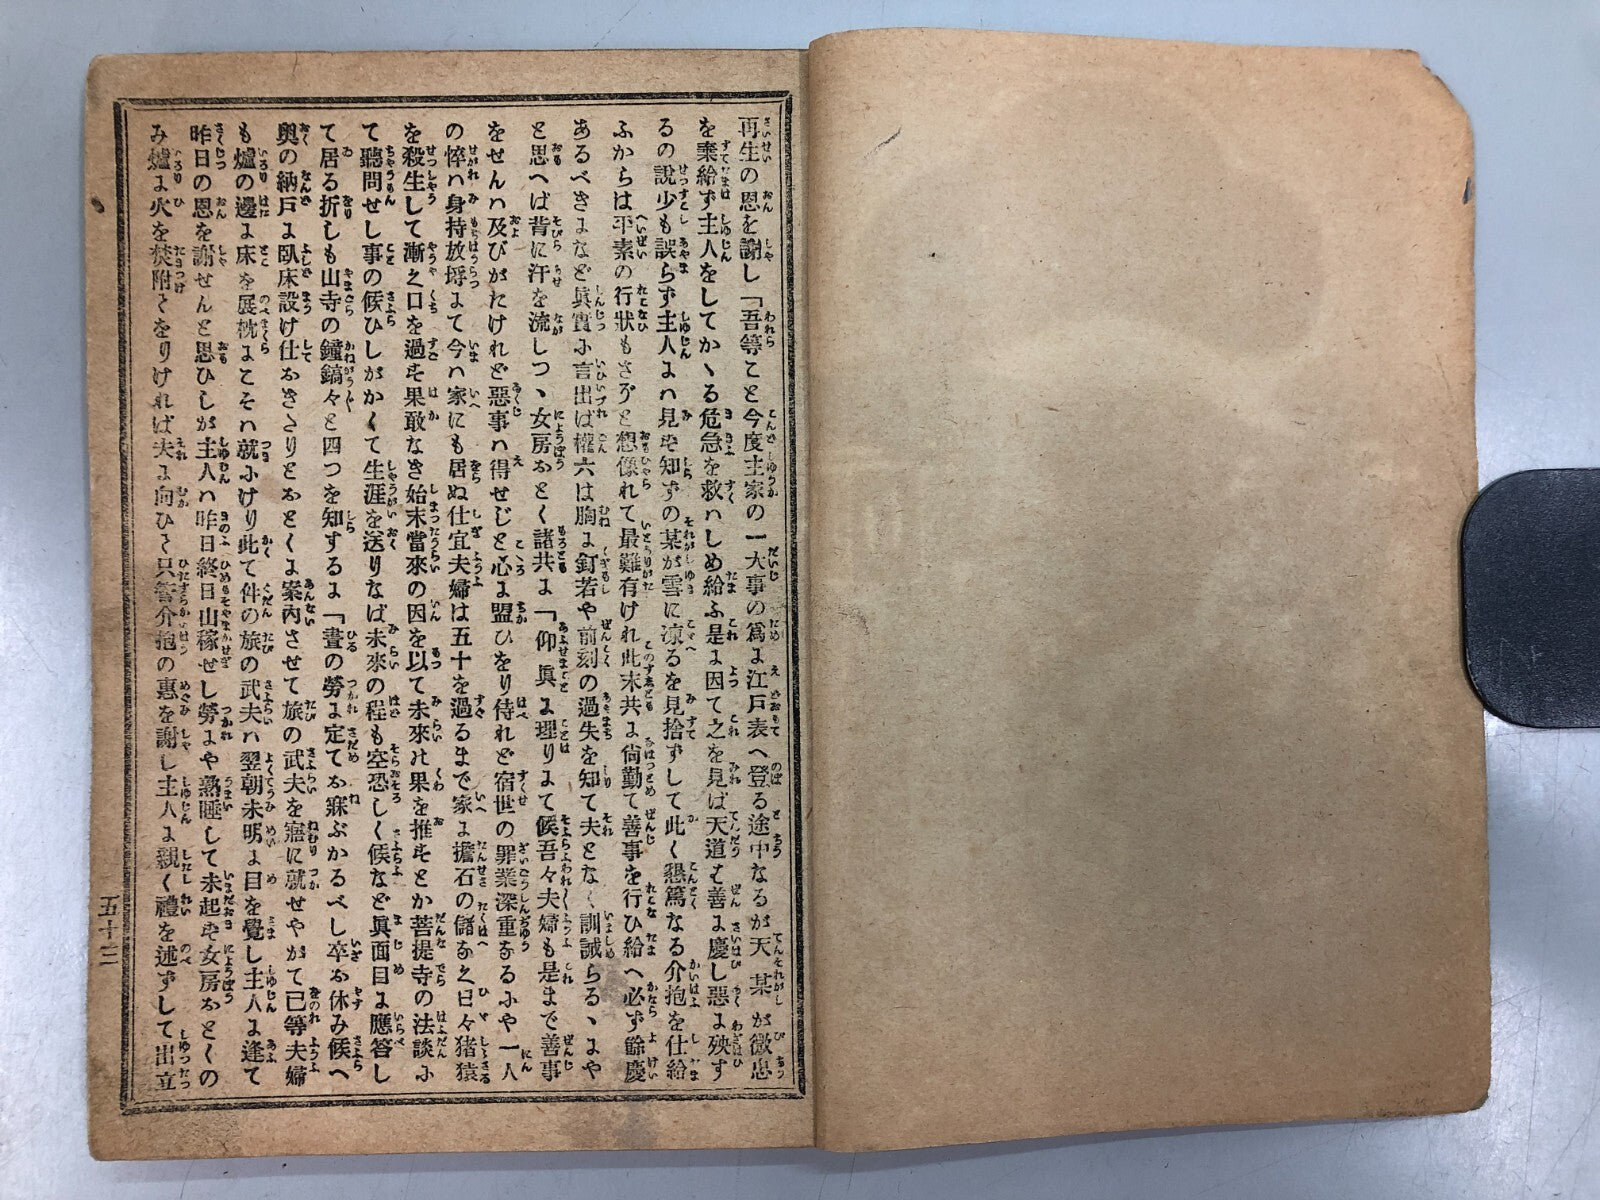 再生の恩を謝し「吾等こと今度主家の一大事の爲よ江戸表へ登る途中なるが天某が微忠
を棄給ず主人をしてかゝる危急を救ハしめ給ふ是よ因て之を見ば天道も善よ慶し惡よ殃す
るの說少も誤らず主人よハ見も知ずの某が雪に凍るを見捨ずして此く懇篤なる介抱を仕給
ふからは平素の行狀もさぞと想像れて最難有けれ此末共よ尙勤て善事を行ひ給へ必ず餘慶
あるべきよなど眞實ふ言出ば權六は胸よ釘若や前刻の過失を知て夫となく訓誡らるゝよや
と思へば背に汗を流しつゝ女房おとく諸共よ「仰眞よ理りよて候吾々夫婦も是まで善事
をせんハ及びがたけれど惡事ハ得せじと心よ盟ひをり侍れど宿世の罪業深重なるふや一人
の悴ハ身持放埓よて今ハ家にも居ぬ仕宜夫婦は五十を過るまで家よ擔石の儲なく日々猪猿
を殺生して漸く口を過も果敢なき始末當來の因を以て未來の果を推もとか菩提寺の法談ふ
て聽問せし事の候ひしがかくて生涯を送りなば未來の程も空恐しく候など眞面目よ應答し
て居る折しも山寺の鐘鎬々と四つを知するよ「晝の勞よ定てお寐ぶかるべし卒お休み候へ
奧の納戸よ臥床設け仕おきさりとおとくよ案內させて旅の武夫を寤に就せやがて已等夫婦
も爐の邊よ床を展枕よこそハ就ふけり此て件の旅の武夫ハ翌朝未明よ目を覺し主人よ逢て
昨日の恩を謝せんと思ひしが主人ハ昨日終日山稼せし勞よや熟睡して未起も女房おとくの
み爐よ火を焚附てをりければ夫よ向ひて只管介抱の惠を謝し主人よ親く禮を述ずして出立
五十三